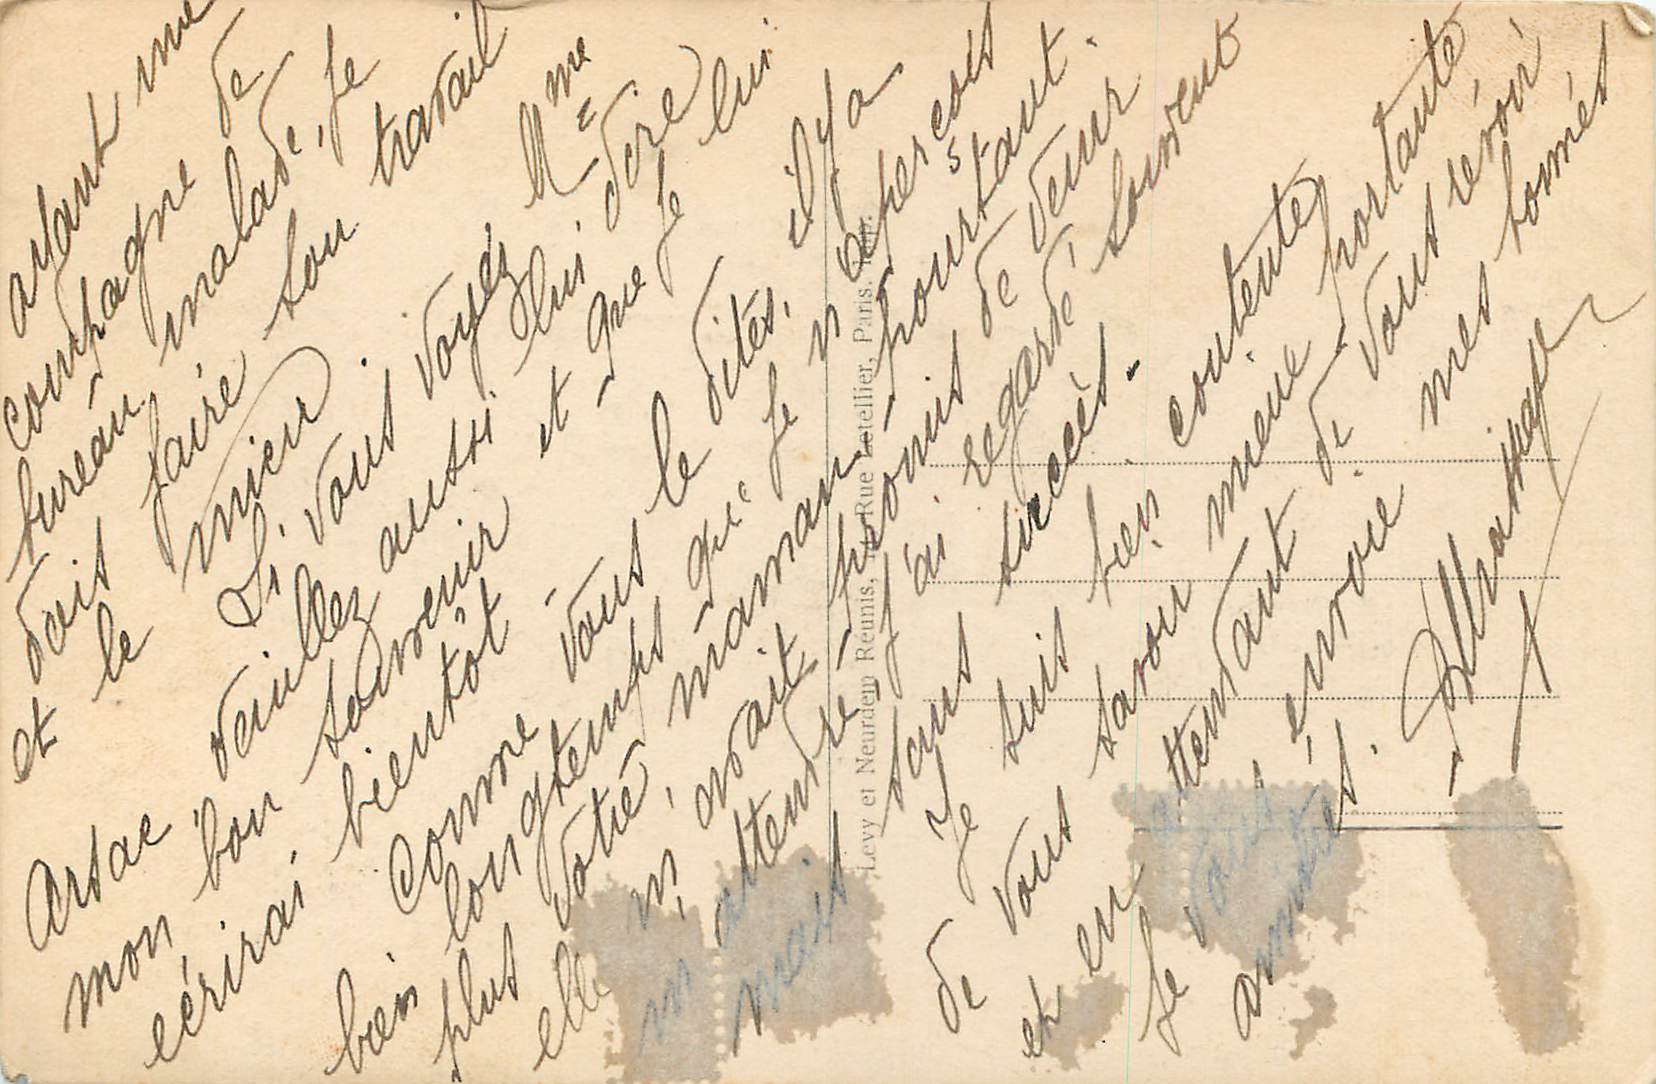 ayant une
compagne de
bureau malade, je
dois faire son travail
et le mien.
Si vous voyez Mme
Arsac veuillez aussi lui dire
mon bon souvenir et que je lui
écrirai bientôt
Comme vous le dites, il y a
bien longtemps que je n aperçois
plus votre maman pourtant.
elle m'avait promis de venir
m attendre j'ai regardé souvent
mais sans succès.
Je suis bien contente
de vous savoir mieux portante
et en attendant de vous revoir
Je vous envoie mes bonnes
amitiés.
Levy et Neurdein Réunis, Rue Letellier, Paris. Imp.